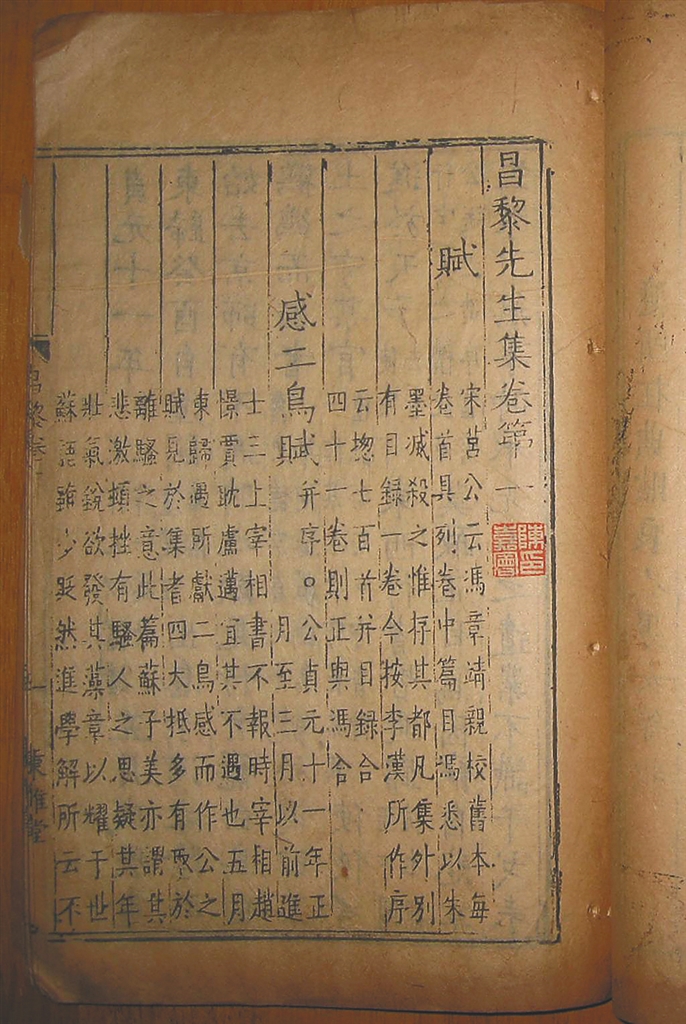 昌黎先生集卷第一
賦
宋莒公云馮章靖親校舊本每
卷首具列卷中篇目馮悉以朱
墨滅殺之惟存其都凡集外別
有目録一卷今按李漢所作序
云揔七百首并目録合
四十一卷則正與馮合
感二鳥賦
并序○公貞元十一年正
月至三月以前進
士三上宰相書不報時宰相趙
憬賈耽盧邁宜其不遇也五月
東歸遇所獻二鳥感而作公之
賦見於集者四大抵多有取於
離騷之意此篇蘇子美亦謂其
悲激頓挫有騷人之思疑其年
壯氣銳欲發其藻章以耀于世
蘇語雖少貶然進學解所云不
昌黎卷一
東雅堂